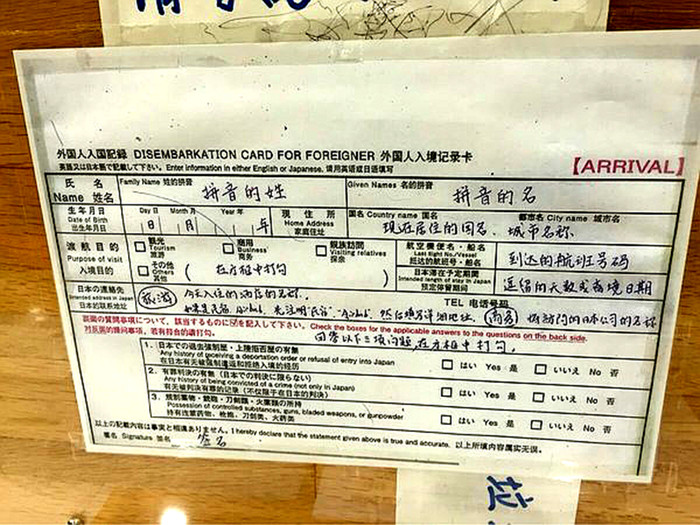 外国人入国記録 DISEMBARKATION CARD FOR FOREIGNER 外国人入境记录卡
英語又は日本語で記載して下さい。 Enter information in either English or Japanese. 请用英语或日语填写
【ARRIVAL】
氏 名
Name 姓名
Family Name 姓的拼音
拼音的姓
Given Names 名的拼音
拼音的名
生年月日
Date of Birth
出生年月日
Day 日 Month 月 Year 年
日 月 年
現 住 所
Home Address
家庭住址
国名 Country name 国名
都市名 City name 城市名
现在居住的国名、城市名称
渡航目的
Purpose of visit
入境目的
観光
Tourism
旅游
商用
Business
商务
親族訪問
Visiting relatives
探亲
その他
Others
其他
(在方框中打勾
航空機便名・船名
Last flight No./Vessel
抵达的航班号・船名
到达的航班号码
日本滞在予定期間
Intended length of stay in Japan
预定停留期间
逗留的天数或离境日期
日本の連絡先
Intended address in Japan
日本的联系地址
旅游 今天入住的酒店的名称.
TEL 电话号码
如果是民宿
然后填写详细地址.
商务
的日本公司的名称
裏面の質問事項について、該当するものに☑を記入して下さい。 Check the boxes for the applicable answers to the questions on the back side.
对反面的提问事项,若有符合的请打勾。
回答以下三项问题,在方框中打勾.
1. 日本での退去強制歴・上陸拒否歴の有無
Any history of receiving a deportation order or refusal of entry into Japan
在日本有无被强制遣返和拒绝入境的经历
はい Yes 是 いいえ No 否
2. 有罪判決の有無(日本での判決に限らない)
Any history of being convicted of a crime (not only in Japan)
有无被判决有罪的记录(不仅限于在日本的判决)
はい Yes 是 いいえ No 否
3. 規制薬物・銃砲・刀剣類・火薬類の所持
Possession of controlled substances, guns, bladed weapons, or gunpowder
持有违禁药物、枪炮、刀剑类、火药类
はい Yes 是 いいえ No 否
以上の記載内容は事実と相違ありません。 I hereby declare that the statement given above is true and accurate. 以上所填内容属实无误。
署名 Signature 签名
签名